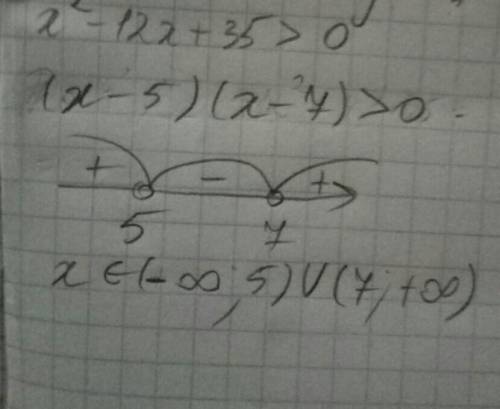 x² - 12x + 35 > 0
(x - 5)(x - 7) > 0
+ - +
5 7
x ∈ (-∞; 5) ∪ (7; +∞)